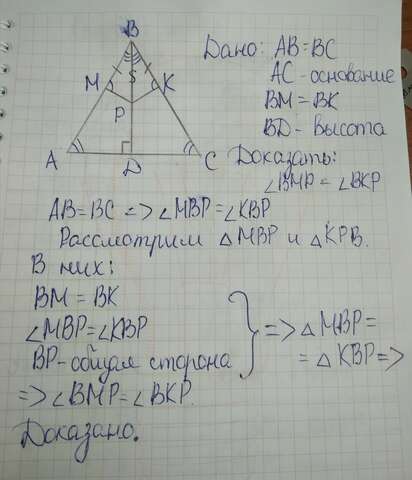 B
S
M
K
P
A
D
C
Дано: AB=BC
AC-основание
BM=BK
BD-высота
Доказать:
∠BMP=∠BKP
AB=BC => ∠MBP=∠KBP
Рассмотрим △MBP и △KPB.
В них:
BM=BK
∠MBP=∠KBP
BP-общая сторона
=> △MBP=
=△KBP=>
=> ∠BMP=∠BKP.
Доказано.